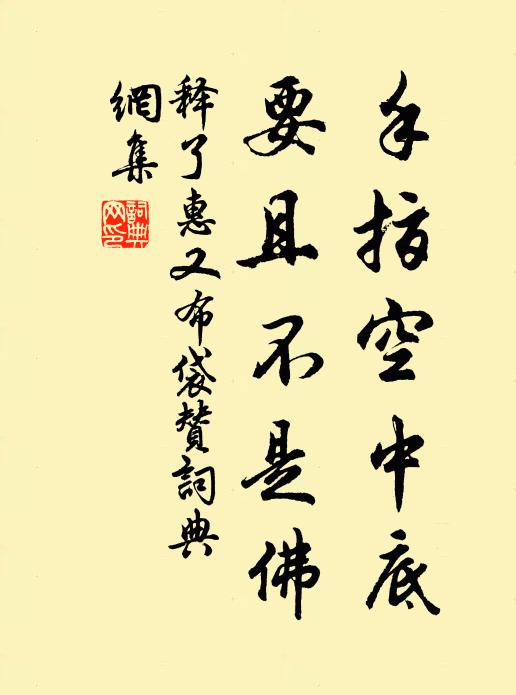 手指空中底
要且不是佛
释了惠又布袋赞词典
網集
詞典網印